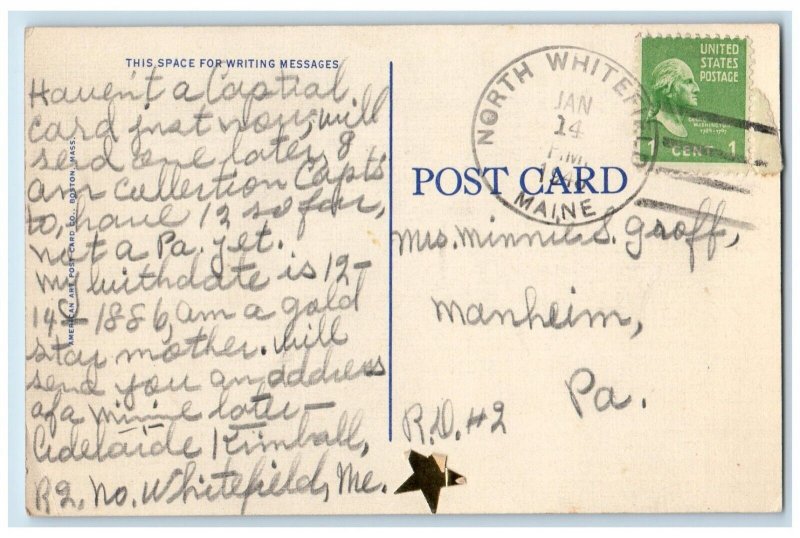 THIS SPACE FOR WRITING MESSAGES
Haven't a Captial
card just now, will
send one later, &
am collection Capts
to, have 12 so far,
not a Pa. yet.
My birthdate is 12-
14-1886, am a gold
star mother. Will
send you an address
of a Minnie later-
Adelaide Kimball,
R2, No. Whitefield, Me.
AMERICAN ART POST CARD CO., BOSTON, MASS.
POST CARD
NORTH WHITEFIELD
JAN
14
P.M.
MAINE
UNITED
STATES
POSTAGE
WASHINGTON
1789-1797
1 CENT 1
Mrs. Minnie S. Groff,
Manheim,
Pa.
R.D. #2